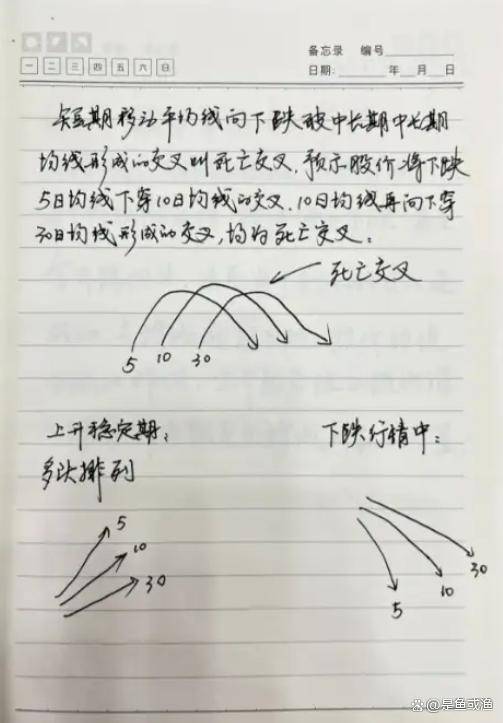 备忘录 编号
一 二 三 四 五 六 日
日期: 年 月 日
短期移动平均线向下跌破中长期中长期
均线形成的交叉叫死亡交叉,预示股价将下跌
5日均线下穿10日均线的交叉、10日均线再向下穿
30日均线形成的交叉,均为死亡交叉。
死亡交叉
5 10 30
上升稳定期: 下跌行情中:
多头排列
5
10
30
30
10
5
@是鱼或渔